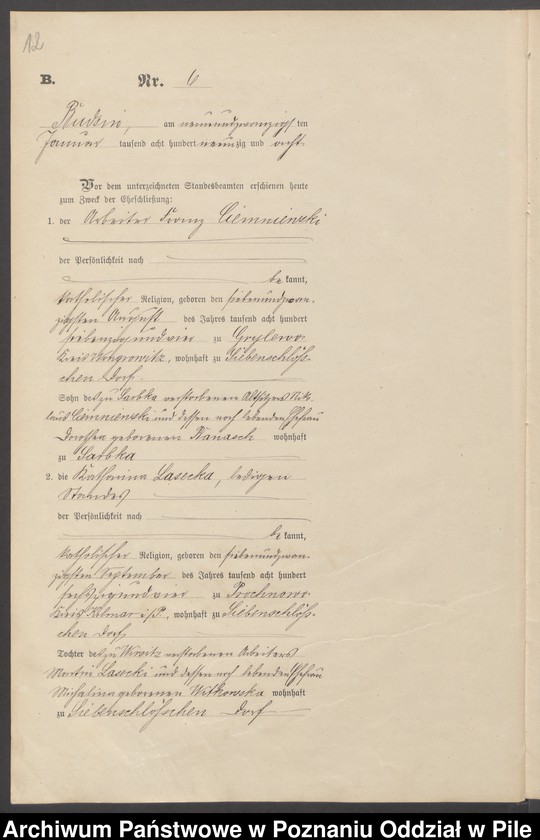 12
B. Nr. 6
Budsin, am neunundzwanzigsten
Januar tausend acht hundert neunzig und acht.
Vor dem unterzeichneten Standesbeamten erschienen heute
zum Zweck der Eheschließung:
1. der Arbeiter Franz Ciemnienski
der Persönlichkeit nach
be kannt,
katholischer Religion, geboren den siebenundzwan-
zigsten August des Jahres tausend acht hundert
siebenzigundvier zu Grylewo
Kreis Wongrowitz, wohnhaft zu Siebenschlöß-
chen Dorf
Sohn des zu Sarbka verstorbenen Altsitzers Nik-
laus Ciemnienski und dessen noch lebenden Ehefrau
Dorothea geborenen Kanasch wohnhaft
zu Sarbka
2. die Katharina Lasecka, ledigen
Standes
der Persönlichkeit nach
be kannt,
katholischer Religion, geboren den siebenundzwan-
zigsten September des Jahres tausend acht hundert
sechszigundvier zu Prochnowo
Kreis Kolmar i/P, wohnhaft zu Siebenschlöß-
chen Dorf
Tochter des zu Wirsitz verstorbenen Arbeiters
Martin Lasecki und dessen noch lebenden Ehefrau
Michalina geborenen Witkowska wohnhaft
zu Siebenschlößchen Dorf
Archiwum Państwowe w Poznaniu Oddział w Pile